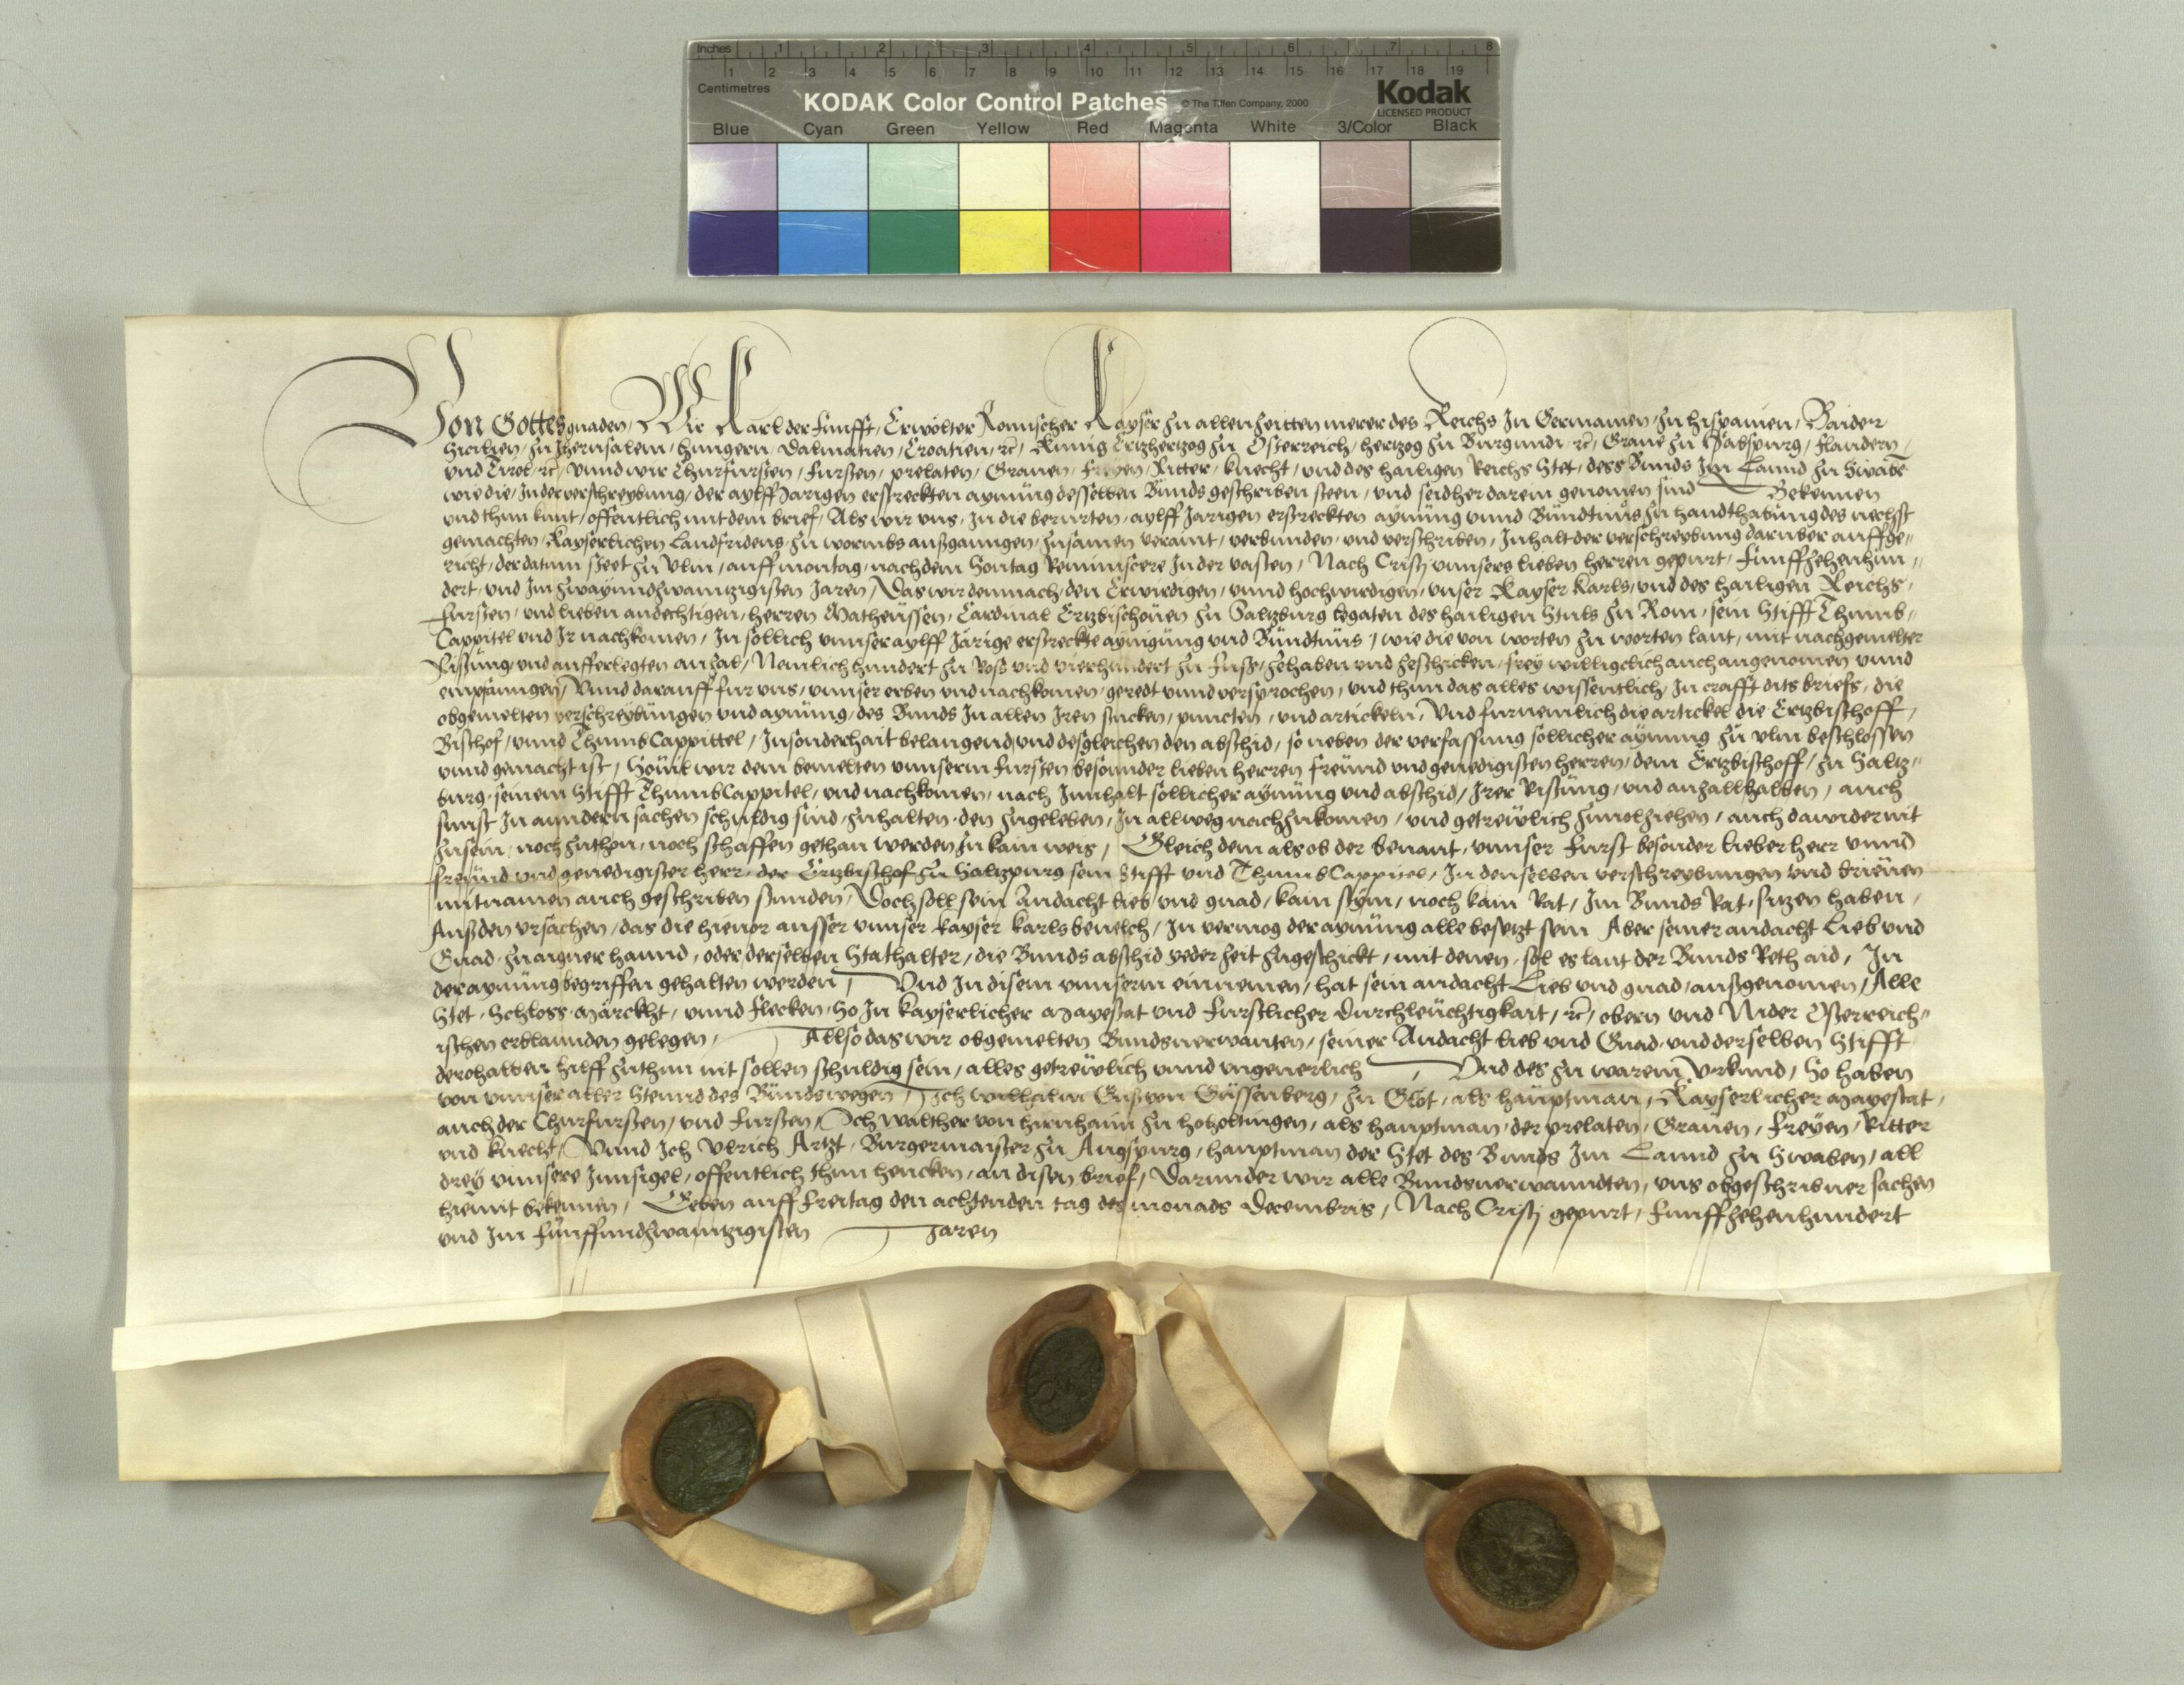 Inches 1 2 3 4 5 6 7 8
1 2 3 4 5 6 7 8 9 10 11 12 13 14 15 16 17 18 19
Centimetres
KODAK Color Control Patches © The Tiffen Company, 2000 Kodak
LICENSED PRODUCT
Blue Cyan Green Yellow Red Magenta White 3/Color Black
Von Gottes gnaden, Wir Karl der funfft, Erwölter Romischer Kayser zu allen zeitten merer des Reichs In Germanien, zu hispanien, Baider
Sicilien, zu Jherusalem, hungern, Dalmatien, Croatien, rc, Kunig Ertzhertzog zu Österreich, hertzog zu Burgundi, rc, Graue zu Habspurg, flandern,
vnd Tirol, rc, vnnd wir Churfursten, fursten, prelaten, Grauen, freyen, Ritter, knecht, vnd des hailigen Reichs Stet, dess Bunds Im Lannd zu Swabe
wie die, Inder verschreybung, der aylff Jarigen erstreckten aynung desselben Bunds geschriben steen, vnd seidher darein genomen sind Bekennen
vnd thun kunt, offentlich mit dem brief, Als wir vns, In die berurten, aylff Jarigen erstreckten aynung vnnd Bundtnus zu handthabung des nechst
gemachten, Kayserlichen Landfridens, zu wormbs außganngen, zusamen veraint, verbunden, vnd verschriben, Inhalt der verschreybung daruber auffge-
richt, der datum steet zu Vlm, auff montag, nach dem Sontag Reminiscere In der vasten, Nach Cristj vnnsers lieben herren gepurt, funffzehenhun-
dert, vnd Im zwayundzwaintzigisten Jaren, Das wir demnach, den Erwirdigen, vnnd hochwirdigen, vnser Kayser Karls, vnd des hailigen Reichs,
fursten, vnd lieben andechtigen, herren Matheussen, Cardinal Ertzbischouen zu Saltzburg legaten des hailigen Stuls zu Rom, sein Stifft Thumb-
Cappitel vnd Ir nachkomen, In sollich vnnser aylff Järige erstreckte aynigung vnd Bundtnus, wie die von worten zu worten laut, mit nachgemelter
Ristung, vnd aufferlegten anzal, Nemlich hundert zu Ross vnd vierhundert zu fuss, zehaben vnd zeschicken, frey williglich auch angenomen vnnd
empfanngen, Vnnd darauff fur vns, vnnser erben vnd nachkomen, geredt vnnd versprochen, vnd thun das alles wissentlich, In crafft dits briefs, die
obgemelten verschreybungen vnd aynung, des Bunds In allen Iren stucken, puncten, vnd artickeln, Vnd furnemlich die artickel die Ertzbischoff,
Bischof, vnnd Thumb Cappittel, Insonderhait belangend, vnd desgleichen den abschid, so neben der verfassung sollicher aynung zu vlm beschlossen
vnnd gemacht ist, Souil wir dem bemelten vnnserm fursten besonnder lieben herren freund vnd genedigisten herren, dem Ertzbischoff, zu Saltz-
burg, seinem Stifft Thumb Cappitel, vnd nachkomen, nach Innhalt sollicher aynung vnd abschid, Irer Ristung, vnd anzallhalben, auch
sunst In anndern sachen schuldig sind, zuhalten, den zugeleben, In allweg nachzukomen, vnd getrewlich zuuolziehen, auch dawider nit
zusein, noch zuthon, noch schaffen gethan werden In kain weis, Gleich dem als ob der benant, vnnser furst besonder lieber herr vnnd
freund vnd genedigister herr, der Ertzbischof zu Saltzpurg sein Stifft vnd Thumb Cappitel, In denselben verschreybungen vnd brieuen
mit namen auch geschriben stunden, Doch soll sein Andacht lieb vnd gnad, kain stym, noch kain Rat, Im Bunds Rat, sitzen haben,
Auß den vrsachen, das die hieuor ausser vnnser kayser karls beuelch, In vermog der aynung alle besetzt sein Aber seiner andacht Lieb vnd
Gnad, zu aigner hannd, oder derselben Stathalter, die Bunds abschid yeder zeit zugeschickt, mit denen, sol es laut der Bunds Reth aid, In
der aynung begriffen gehalten werden, Vnd In disem vnnserm einnemen, hat sein andacht Lieb vnd gnad, außgenomen, Alle
Stet, Schloss, Märckht, vnnd flecken, So In kayserlicher Mayestat vnd furstlicher Durchleuchtigkait, rc, obern vnd Nider Osterreich-
ischen erblannden gelegen, Allso das wir obgemelten Bundsuerwanten, seiner Andacht lieb vnd Gnad, vnd derselben Stifft
derohalben hilff zuthun nit sollen schuldig sein, alles getrewlich vnnd vngeuerlich, Vnd des zu warem Vrkund, So haben
von vnnser aller Stennd des Bunds wegen, Ich wilhalm Guß von Güssenberg, zu Glöt, als hauptman, Kayserlicher Mayestat,
auch der Churfursten, vnd fursten, Ich walther von hirnhaim zu hoholtingen, als hauptman, der prelaten, Grauen, Freyen, Ritter
vnd knecht, Vnnd Ich Vlrich Artzt, Burgermaister zu Augspurg, hauptman der Stet des Bunds Im Lannd zu Swaben, all
drey vnnsere Innsigel, offentlich thun hencken, an disen brief, Darunder wir alle Bundsuerwanndten, vns obgeschribner sachen
hiemit bekennen, Geben auff Freitag den achtenden tag des monads Decembris, Nach Cristj gepurt, funffzehenhundert
vnd Im funffundzwaintzigisten Jaren